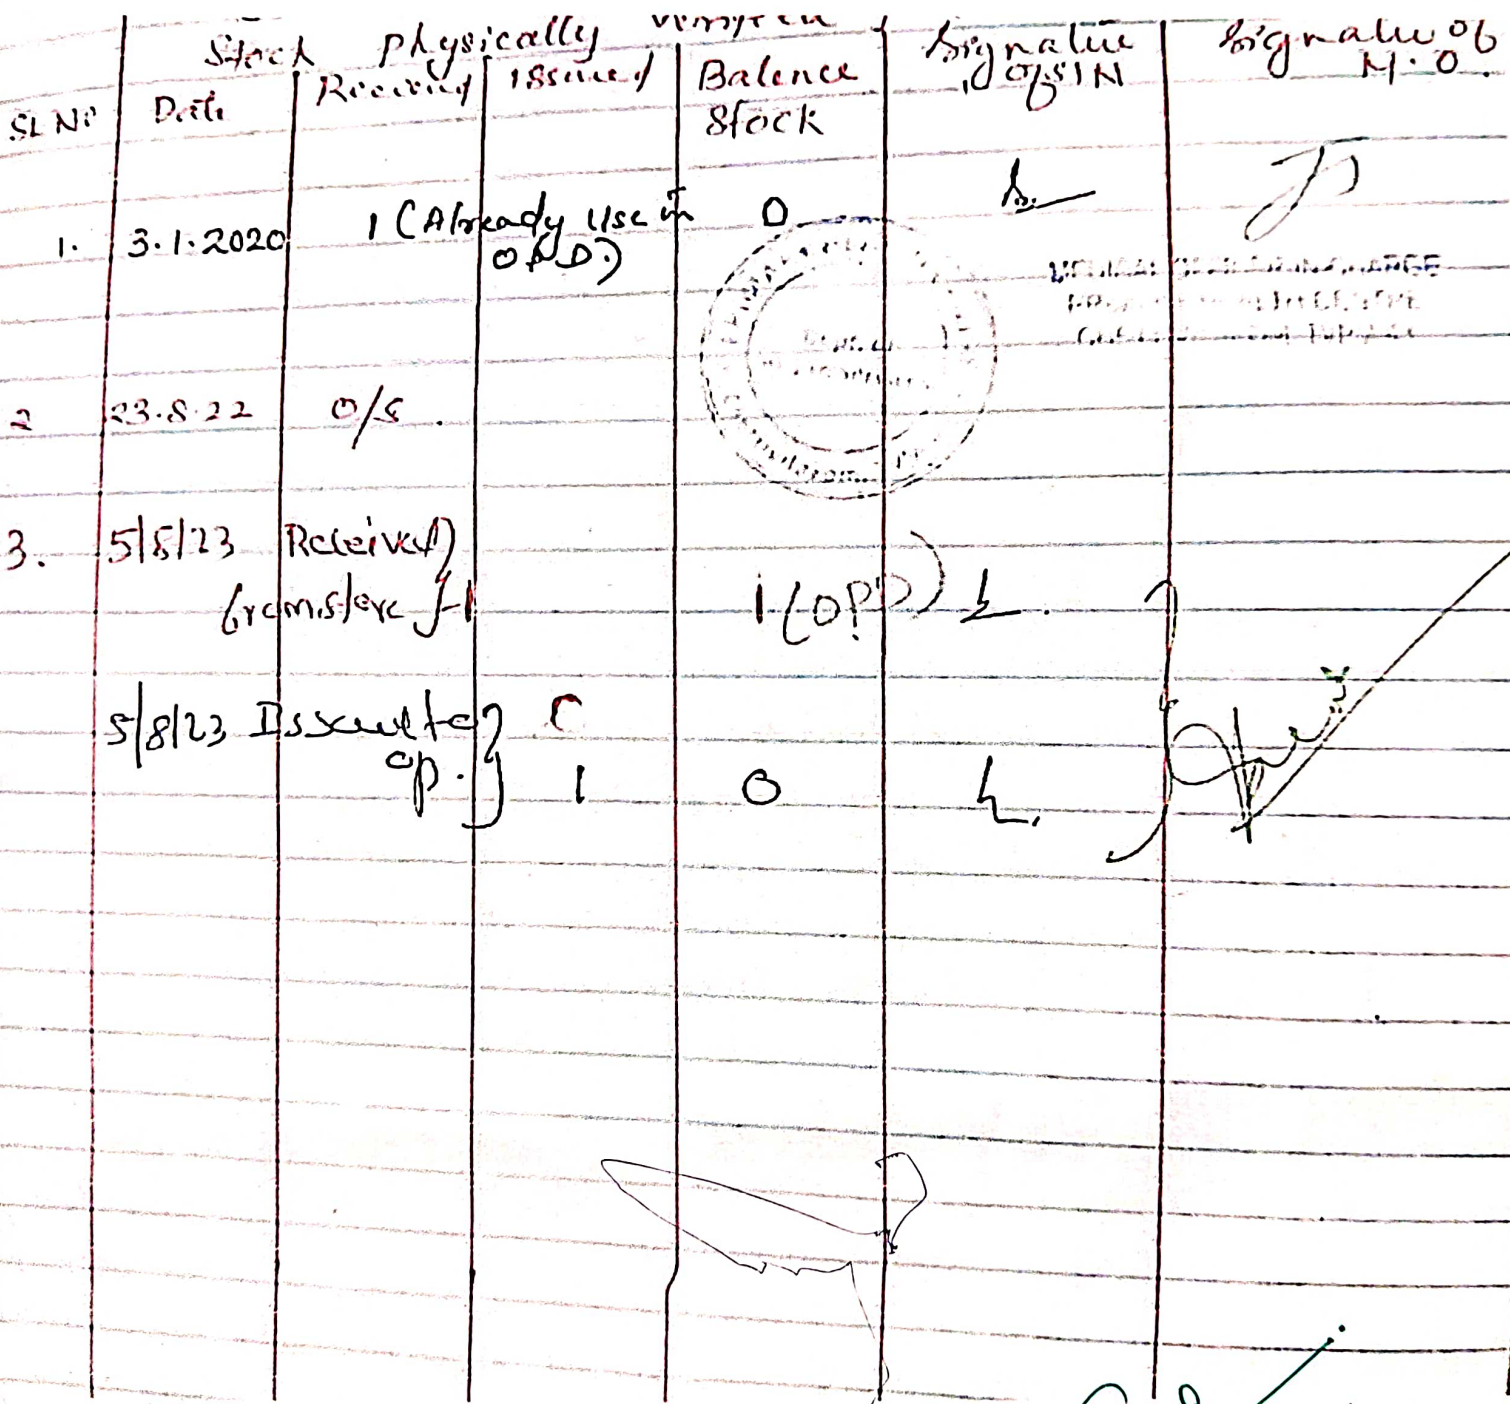 Stock Physically Verified
SL No Date Received Issued Balence Stock Signature of SIN Signature of M.O.
1. 3.1.2020 1 (Already Use in O.P.D.) 0
2 23.8.22 O/S.
3. 5/8/23 Received
from store }-1 1 (OPD)
5/8/23 Issue to
op. } 1 0